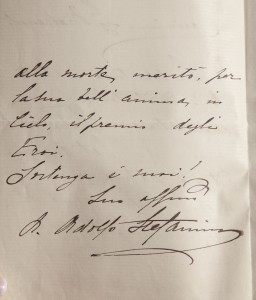 alla morte, meritò, per
la sua bell'anima, in
Cielo, il premio degli
Eroi.
Sostenga i suoi!
Suo affmo
A. Adolfo Stefanini